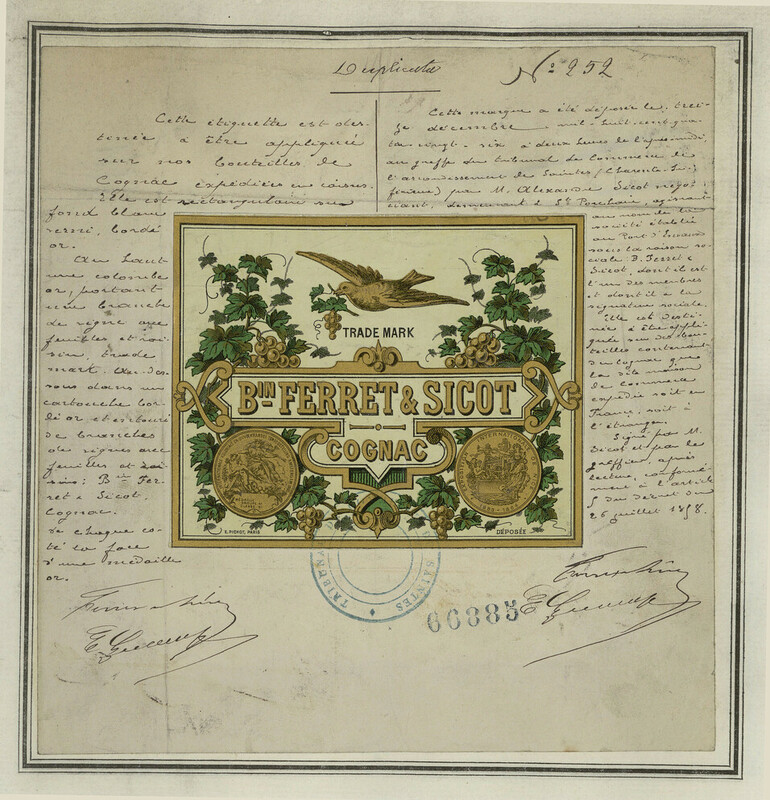 Duplicata
N° 252
Cette étiquette est des-
tinée à être appliquée
sur nos bouteilles de
Cognac expédiées en caisses.
Elle est rectangulaire sur
fond blanc
verni, bordé
or.
Au haut
une colombe
or, portant
une branche
de vigne avec
feuilles et rai-
sin, trade
mark. Au-des-
sous dans un
cartouche bor-
dé or et entouré
de branches
de vignes avec
feuilles et rai-
sins: Bin Fer-
ret & Sicot,
Cognac.
De chaque co-
té la face
d'une medaille
or.
Cette marque a été déposée le trei-
ze décembre mil-huit-cent-qua-
tre-vingt-six à deux heures de l'après-midi,
au greffe du tribunal de Commerce de
l'arrondissement de Saintes (Charente-In-
férieure) par M. Alexandre Sicot négo-
ciant, demeurant à St Porchaire, agissant
au nom de la
société établie
au Pont d'
sous la raison so-
ciale B. Ferret &
Sicot, dont il est
l'un des membres
et dont il a la
signature sociale.
Elle est desti-
née à être appli-
quée sur des bou-
teilles contenant
du cognac que
la dite maison
de commerce
expédie soit en
France, soit à
l'étranger.
Signé par M.
Sicot et par le
greffier, après
lecture, conformé-
ment à l'article
5 du décret du
26 juillet 1858.
TRADE MARK
BIN FERRET & SICOT
COGNAC
INTERNATIONAL
PARIS
DÉPOSÉE
TRIBUNAL
SAINTES
66885